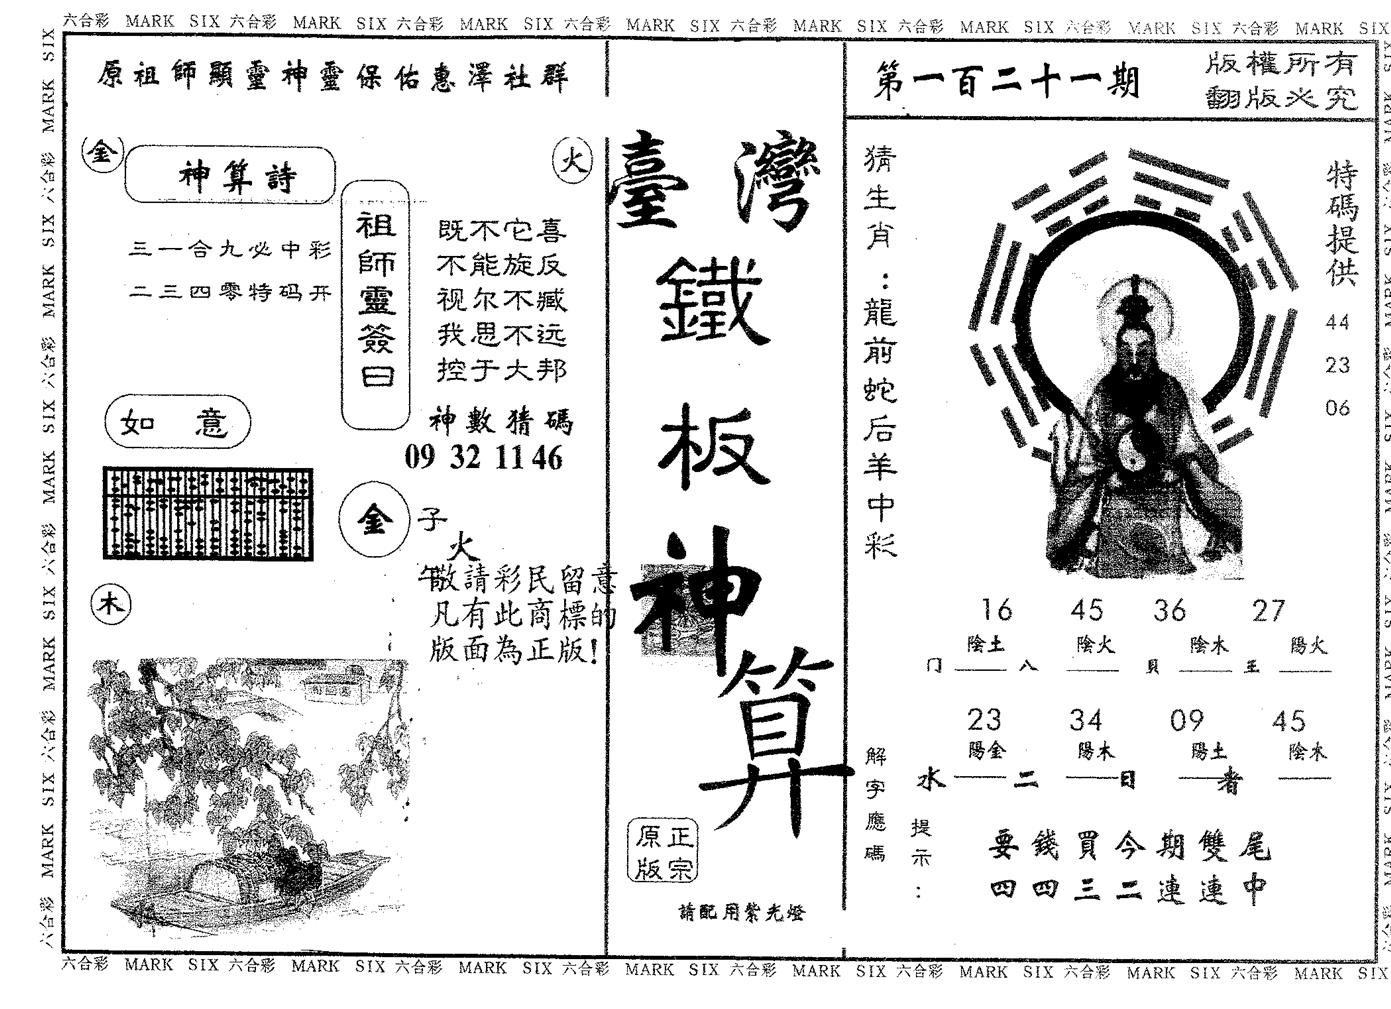 六合彩 MARK SIX 六合彩 MARK SIX 六合彩 MARK SIX 六合彩 MARK SIX 六合彩 MARK SIX 六合彩 MARK SIX 六合彩 MARK SIX 六合彩 MARK SIX
原祖師顯靈神靈保佑惠澤社群
金
神算詩
三一合九必中彩
二三四零特码开
祖師靈簽曰
火
既不它喜
不能旋反
视尔不臧
我思不远
控于大邦
神數猜碼
09 32 11 46
如意
金
子
火
午
木
敬請彩民留意
凡有此商標的
版面為正版!
臺灣
鐵板神算
正宗
原版
請配用紫光燈
第一百二十一期
版權所有
翻版必究
猜生肖：龍前蛇后羊中彩
特碼提供
44
23
06
16 45 36 27
陰土 陰火 陰木 陽火
门 八 貝 王
23 34 09 45
陽金 陽木 陽土 陰水
水 二 日 者
解字應碼
提示：
要錢買今期雙尾
四四三二連連中
六合彩 MARK SIX 六合彩 MARK SIX 六合彩 MARK SIX 六合彩 MARK SIX 六合彩 MARK SIX 六合彩 MARK SIX 六合彩 MARK SIX 六合彩 MARK SIX